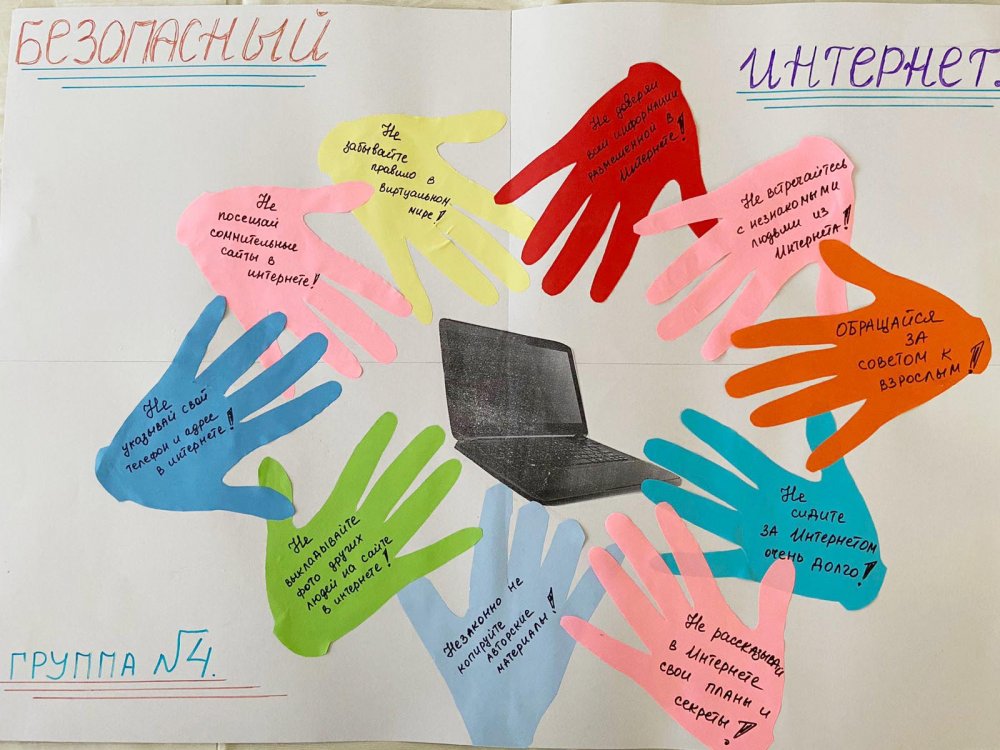 БЕЗОПАСНЫЙ
ИНТЕРНЕТ.
Не
посещай
сомнительные
сайты в
интернете!
Не
забывайте
правило в
виртуальном
мире!
Не доверяй
всей информации
размещенной в
Интернете!
Не встречайтесь
с незнакомыми
людьми из
Интернета!
ОБРАЩАЙСЯ
ЗА
СОВЕТОМ К
ВЗРОСЛЫМ!
Не
сидите
за Интернетом
очень долго!
Не рассказывай
в Интернете
свои планы и
секреты!
Незаконно не
копируйте
авторские
материалы!
Не
выкладывайте
фото других
людей на сайте
в интернете!
Не
указывай свой
телефон и адрес
в интернете!
ГРУППА №4.